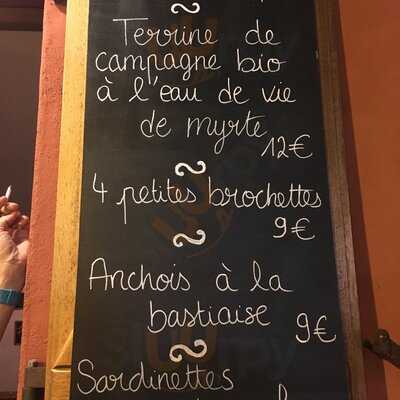 Terrine de
campagne bio
à l'eau de vie
de myrte
12€
4 petites brochettes
9€
Anchois à la
bastiaise 9€
Sardinettes